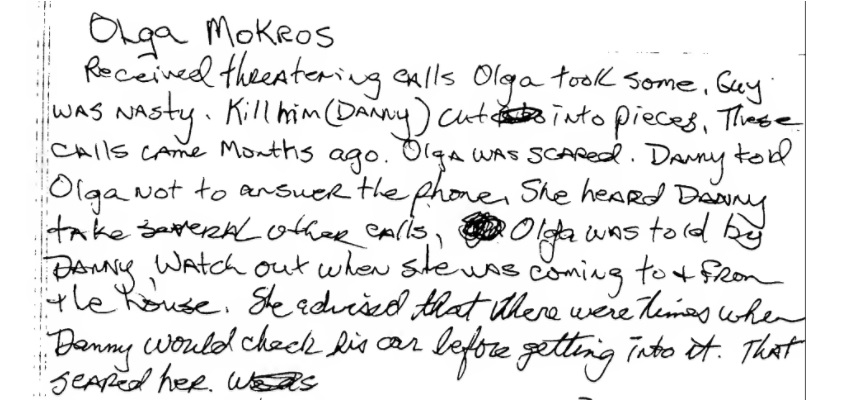 Olga Mokros
Received threatening calls Olga took some. Guy
was nasty. Kill him (Danny) cut into pieces. These
calls came months ago. Olga was scared. Danny told
Olga not to answer the phone. She heard Danny
take several other calls, Olga was told by
Danny Watch out when she was coming to + from
the house. She advised that there were times when
Danny would check his car before getting into it. That
scared her.